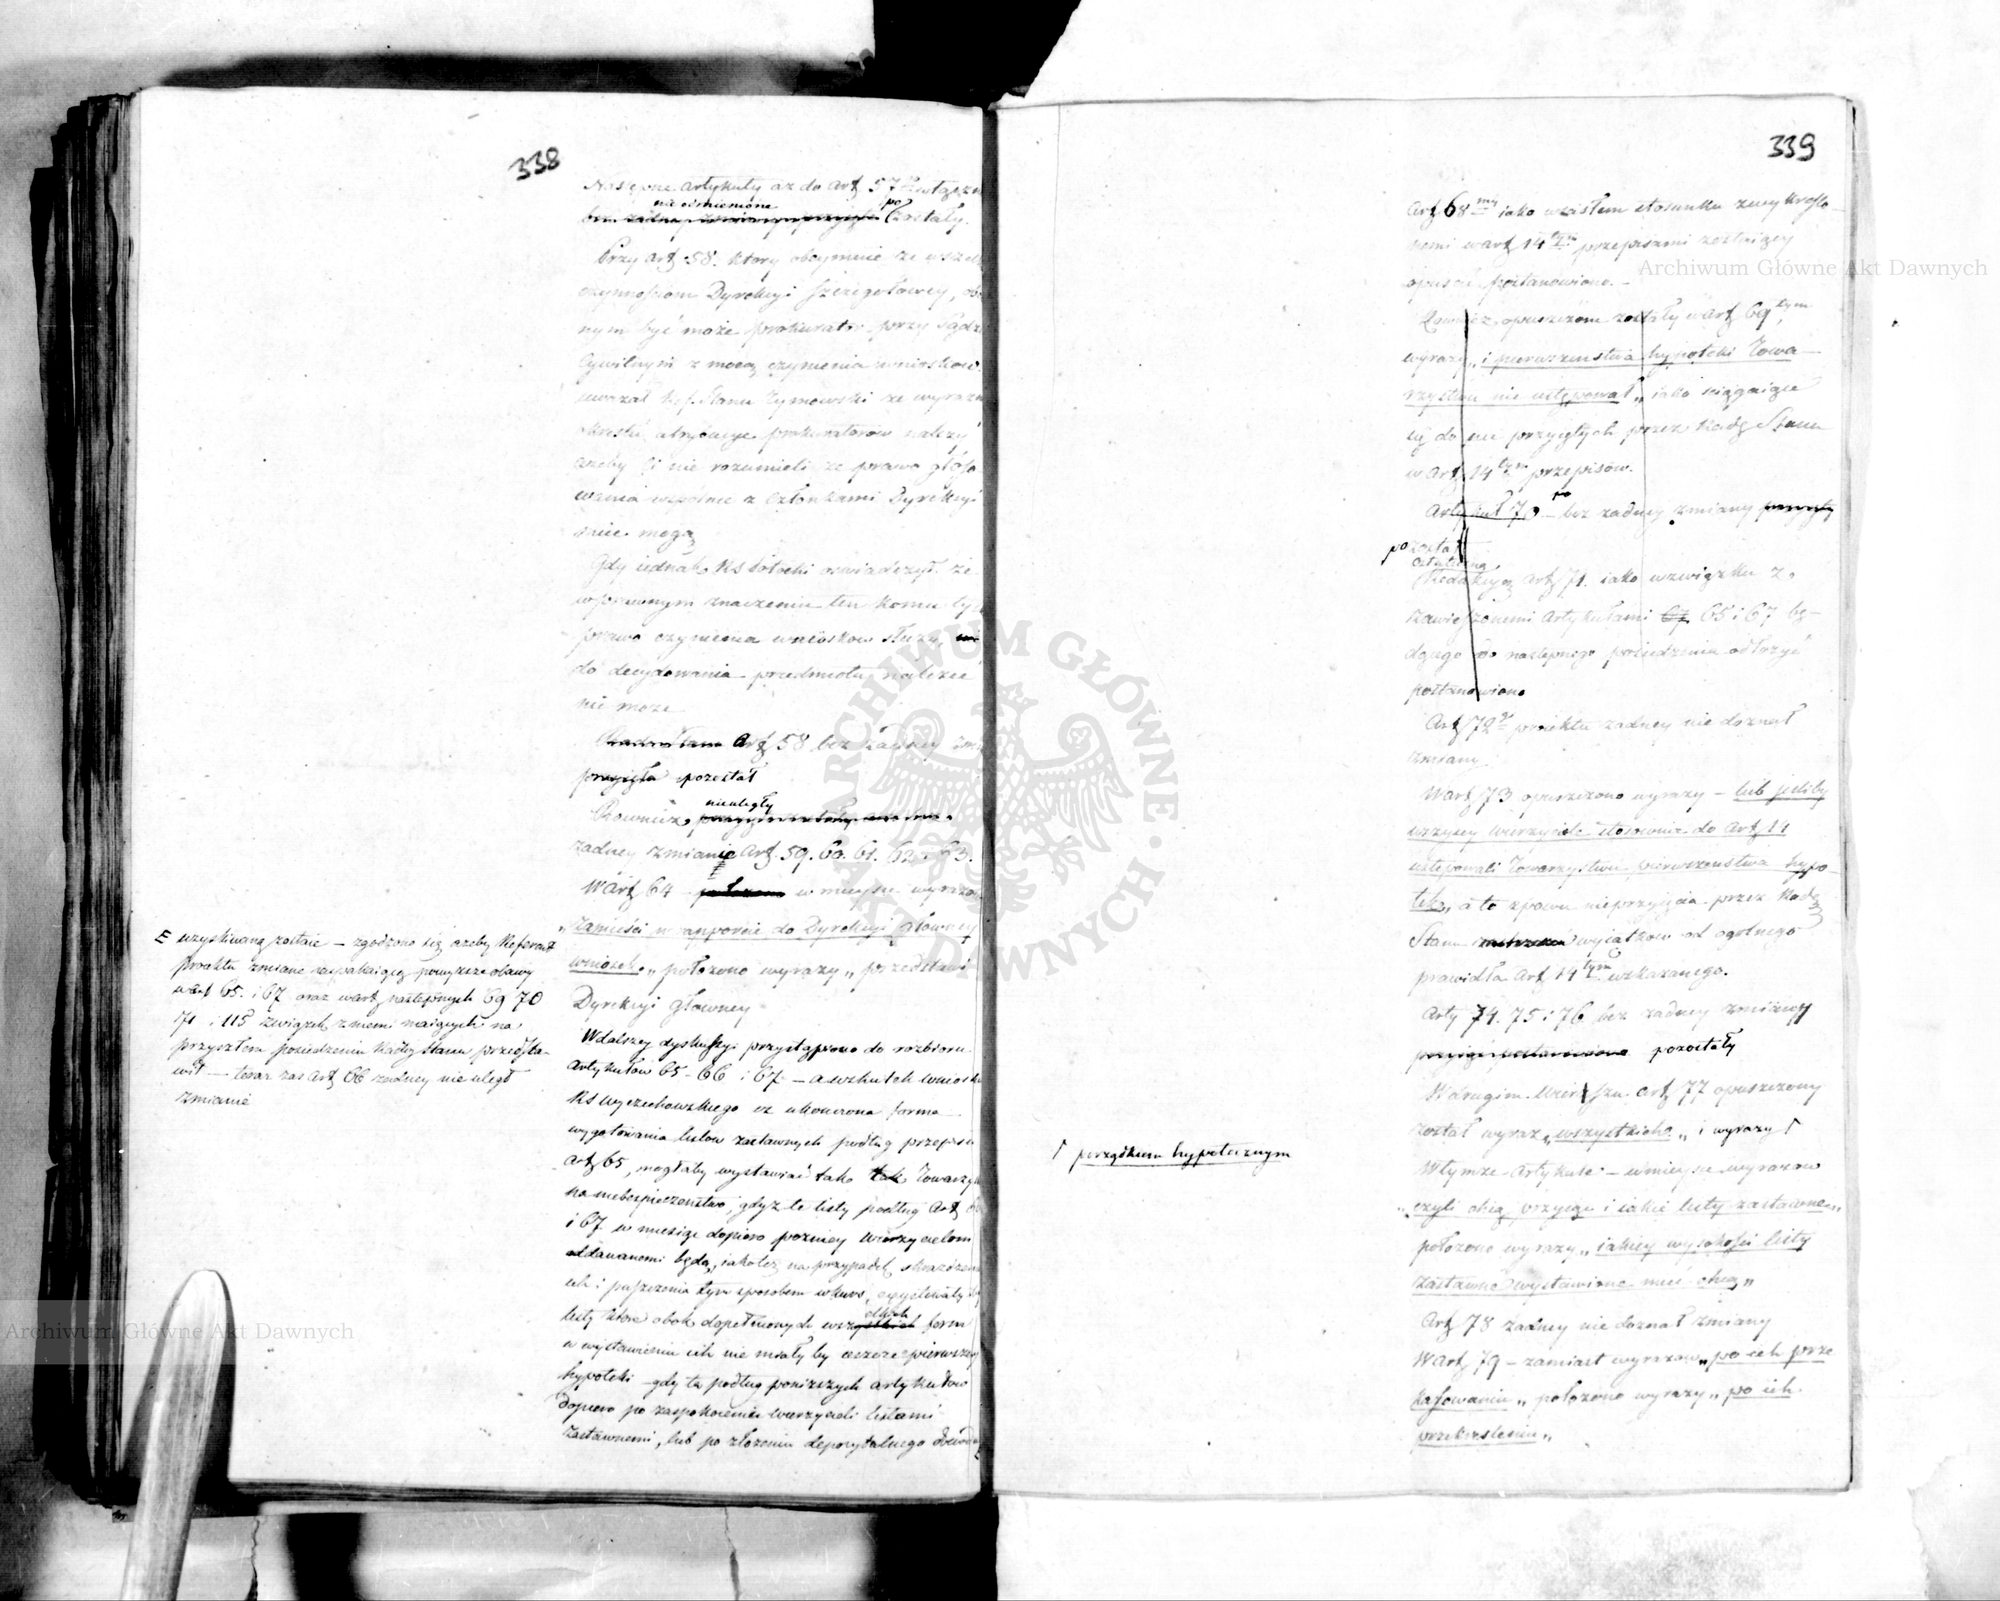 338
Następne artykuły aż do Art 57 włączn
nie zmienione po
zostały.
Przy Art 58. który obeymuie że wszel
czynnościom Dyrekcyi Szczegółowey, obe
nym być może prokurator przy Sądzie
Cywilnym z mocą czynienia wniosków
uważał Ref. Stanu Tymowski że wyraz
określić atrybucye prokuratorów należy
ażeby Ci nie rozumieli że prawo głoso
wania wspólnie z Członkami Dyrekcyi
mogą
Gdy iednak KS Potocki oświadczył że
w prawnym znaczeniu ten komu
prawo czynienia wniosków służy,
do decydowania przedmiotu należeć
nie może
Art 58 bez żadney
przyięła pozostał
Rownież nieuległy
żadney zmianie Art. 59. 60. 61. 62. 63.
W Art 64 w mieysce wyrazów
„zamieści w rapporcie do Dyrekcyi Główney
wniosek„ położono wyrazy „przedstawi
Dyrekcyi Główney
W dalszey dyskussyi przystąpiono do rozbioru
Artykułów 65 - 66 i 67. — a w skutek wniosku
KS Wyczechowskiego że ukończona forma
wygotowania listów zastawnych podług przepisu
Art 65, mogłaby wystawiać tak Towarzys
na niebezpieczeństwo, gdyż te listy podług Art 6
i 67 w miesiąc dopiero pozniey wierzycielom
oddawanemi będą, iakoteż na przypadek skradzenia
ich i puszczenia tym sposobem w kurs,
listy które obok dopełnionych wszelkich form
w wystawieniu ich nie miałyby ieszcze pierwszey
hypoteki — gdy ta podług poniższych artykułów
dopiero po zaspokoieniu wierzycieli listami
zastawnemi, lub po złożeniu depozytalnego dowodu
E uzyskiwaną zostaie — zgodzono się ażeby Referent
proiektu zmianę zaspakaiaiącą powyższe obawy
w Art 65. i 67 oraz w Art następnych 69 70
71 i 115 związek z niemi maiących na
przyszłem posiedzeniu Rady Stanu przedsta-
wił — teraz zaś Art 66 żadney nie uległ
zmianie
339
Art 68 my iako w ścisłem stosunku z wykreślo-
nemi w Art 14 tym przepisami zostaiący
opuścić postanowiono.
Rownież opuszczone zostały w Art 69 tym
wyrazy „i pierwszeństwa hypoteki Towa-
rzystwu nie ustępował„ iako ściągaiące
się do nie przyiętych przez Radę Stanu
w Art 14 tym przepisów.
Artykuł 70 bez żadney zmiany przyięty
pozostał
ostateczną
Redakcyą Art 71. iako w związku z
zawieszonemi Artykułami 65 i 67 bę-
dącego do następnego posiedzenia odłożyć
postanowiono
Art 72 proiektu żadney nie doznał
zmiany.
W Art 73 opuszczono wyrazy — lub ieśliby
wszyscy wierzyciele stosownie do Art 14
ustępowali Towarzystwu pierwszeństwa hypo-
teki„ a to z powodu nieprzyięcia przez Radę
Stanu wyiątków od ogólnego
prawidła Art 14 tym wskazanego.
Arty 74. 75 i 76 bez żadney zmiany
pozostały
W drugim wierszu Art 77 opuszczony
został wyraz „wszystkich„ i wyrazy Γ
Γ porządkiem hypotecznym
W tymże Artykule — w mieysce wyrazów
„czyli chcą przyiąć i iakie listy zastawne„
położono wyrazy „iakiey wysokości listy
zastawne wystawione mieć chcą„
Art 78 żadney nie doznał zmiany
W Art 79 — zamiast wyrazów „po ich prze
kasowaniu„ położono wyrazy „po ich
przekreśleniu„
ARCHIWUM GŁÓWNE AKT DAWNYCH
Archiwum Główne Akt Dawnych
Archiwum Główne Akt Dawnych